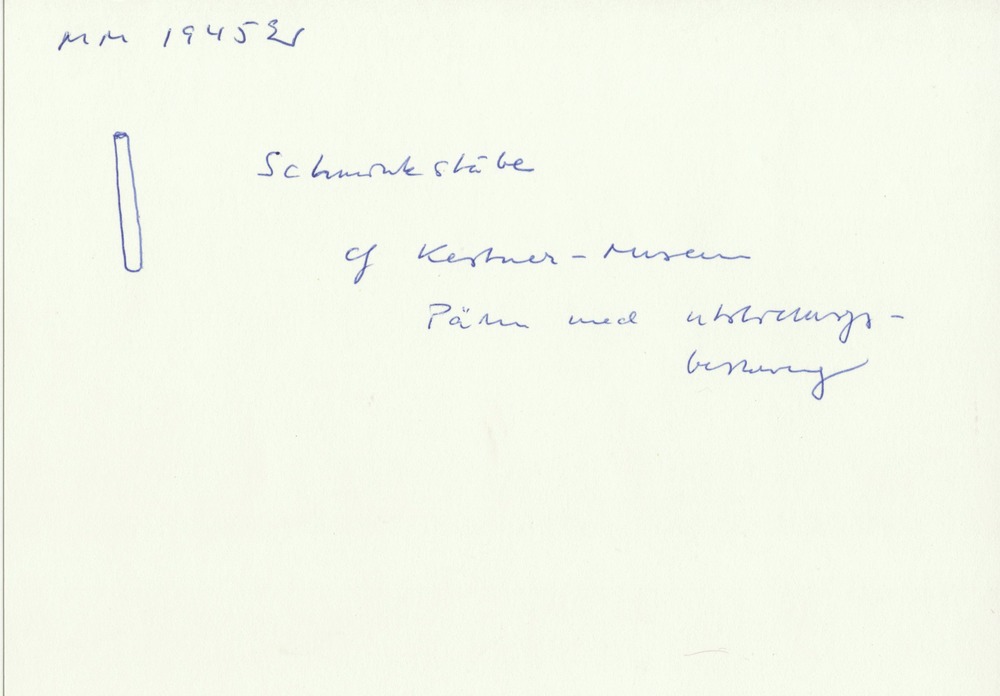 MM 19452
Schminkstäbe
cf Kestner-Museum
Pärm med utställnings-